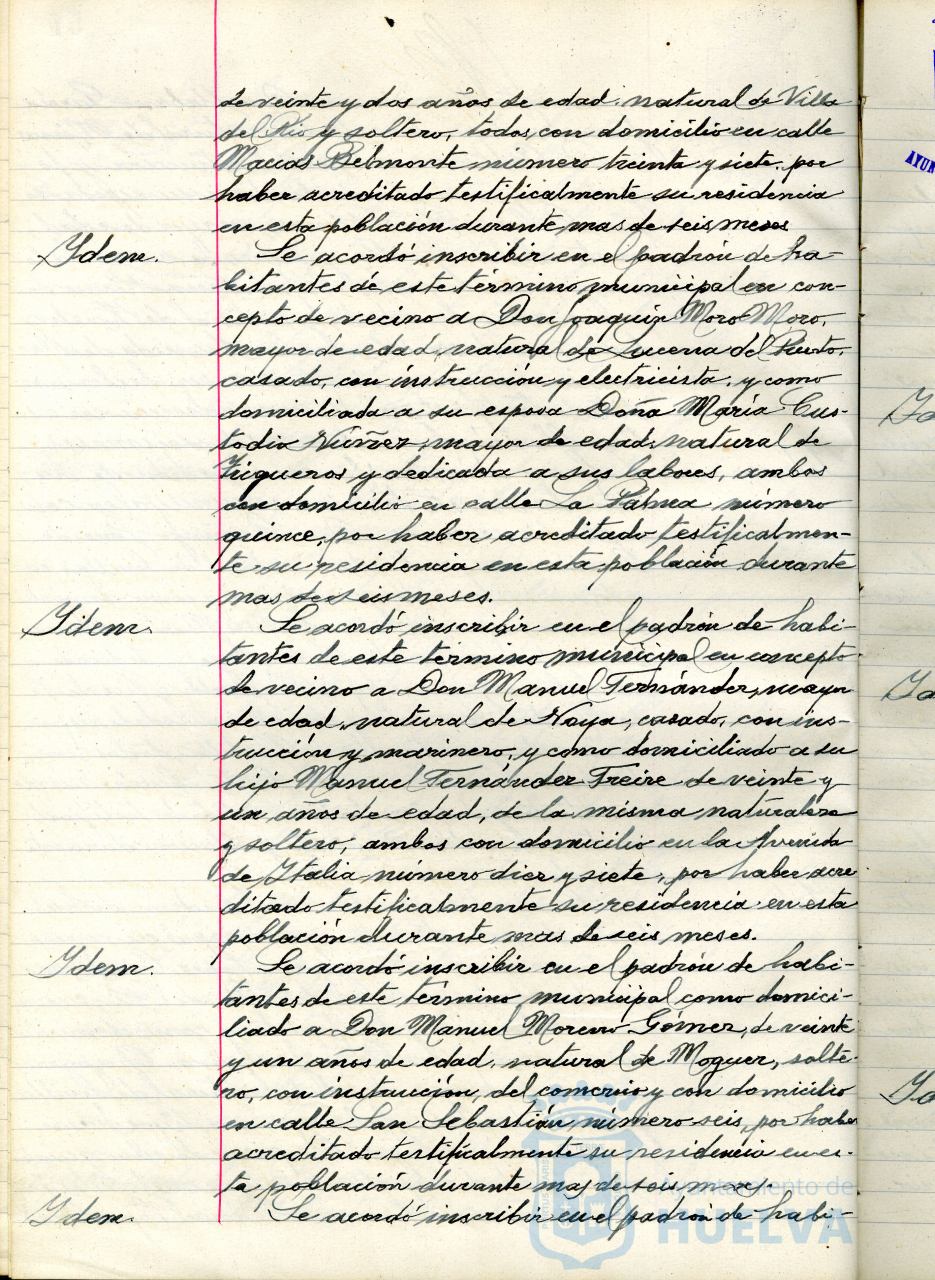 de veinte y dos años de edad, natural de Villa
del Río y soltero, todos con domicilio en calle
Macias Belmonte número treinta y siete, por
haber acreditado testificalmente su residencia
en esta población durante mas de seis meses
Ydem.
Se acordó inscribir en el padrón de ha-
bitantes de este término municipal en con-
cepto de vecino a Don Joaquin Moro Moro,
mayor de edad, natural de Lucena del Puerto,
casado, con instrucción y electricista, y como
domiciliada a su esposa Doña María Cus-
todio Núñez, mayor de edad, natural de
Trigueros y dedicada a sus labores, ambos
con domicilio en calle La Palma número
quince, por haber acreditado testificalmen-
te su residencia en esta población durante
mas de seis meses.
Ydem.
Se acordó inscribir en el padrón de habi-
tantes de este término municipal en concepto
de vecino a Don Manuel Fernández, mayor
de edad, natural de Noya, casado, con ins-
trucción y marinero, y como domiciliado a su
hijo Manuel Fernández Freire de veinte y
un años de edad, de la misma naturaleza
y soltero, ambos con domicilio en la Avenida
de Italia número diez y siete, por haber acre
ditado testificalmente su residencia en esta
población durante mas de seis meses.
Ydem.
Se acordó inscribir en el padrón de habi-
tantes de este término municipal como domici-
liado a Don Manuel Moreno Gómez, de veinte
y un años de edad, natural de Moguer, solte-
ro, con instrucción, del comercio y con domicilio
en calle San Sebastián, número seis, por haber
acreditado testificalmente su residencia en es-
ta población durante mas de seis meses.
Ydem.
Se acordó inscribir en el padrón de habi-
Ayuntamiento de
HUELVA
AYUN
Yd
Yd
Yd